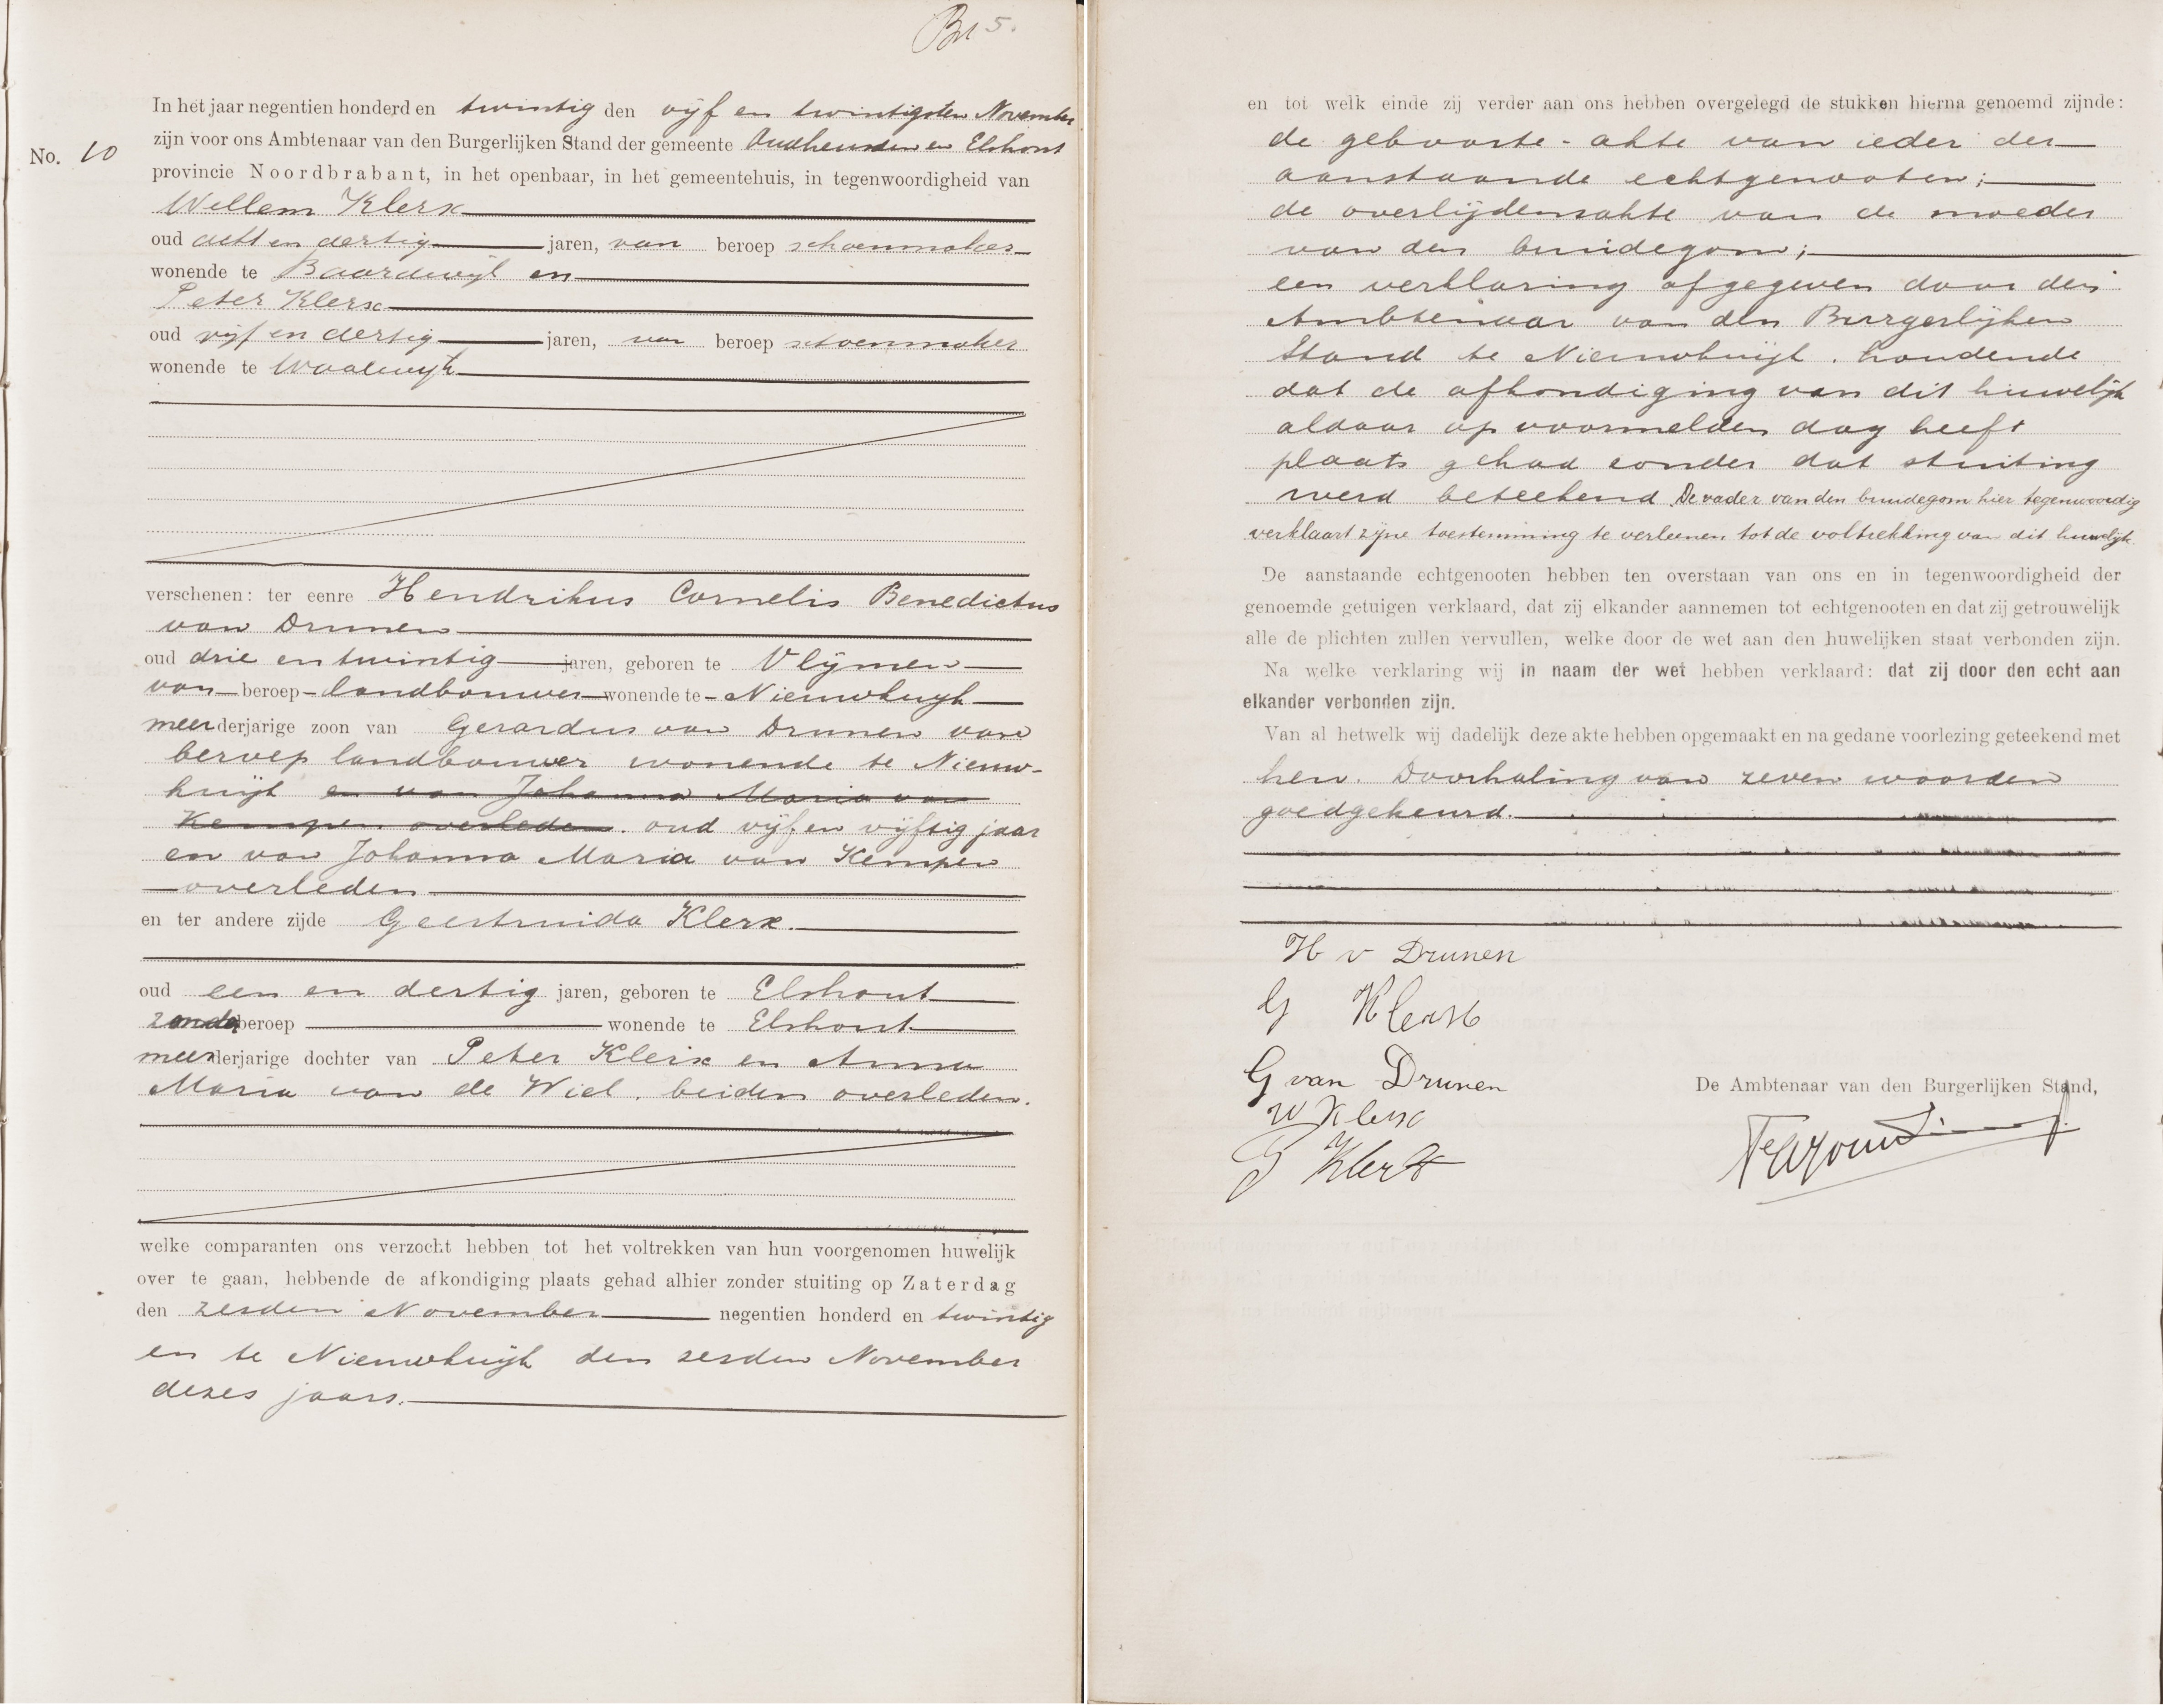 5.
In het jaar negentien honderd en twintig den vijf en twintigsten November
zijn voor ons Ambtenaar van den Burgerlijken Stand der gemeente Oudheusden en Elshout
No. 10
provincie Noordbrabant, in het openbaar, in het gemeentehuis, in tegenwoordigheid van
Willem Klerx
oud acht en dertig jaren, van beroep schoenmaker
wonende te Baardwijk en
Peter Klerx
oud vijf en dertig jaren, van beroep schoenmaker
wonende te Waalwijk
verschenen: ter eenre Hendrikus Cornelis Benedictus
van Drunen
oud drie en twintig jaren, geboren te Vlijmen
van beroep landbouwer wonende te Nieuwkuijk
meerderjarige zoon van Gerardus van Drunen van
beroep landbouwer wonende te Nieuw-
kuijk en van Johanna Maria van
Kempen overleden. oud vijf en vijftig jaar
en van Johanna Maria van Kempen
overleden
en ter andere zijde Geertruida Klerx.
oud een en dertig jaren, geboren te Elshout
zonder beroep wonende te Elshout
meerderjarige dochter van Peter Klerx en Anna
Maria van de Wiel, beiden overleden.
welke comparanten ons verzocht hebben tot het voltrekken van hun voorgenomen huwelijk
over te gaan, hebbende de afkondiging plaats gehad alhier zonder stuiting op Zaterdag
den zesden November negentien honderd en twintig
en te Nieuwkuijk den zesden November
dezes jaars.
en tot welk einde zij verder aan ons hebben overgelegd de stukken hierna genoemd zijnde:
de geboorte-akte van ieder der
aanstaande echtgenooten;
de overlijdensakte van de moeder
van den bruidegom;
een verklaring afgegeven door den
Ambtenaar van den Burgerlijken
Stand te Nieuwkuijk, houdende
dat de afkondiging van dit huwelijk
aldaar op voormelden dag heeft
plaats gehad zonder dat stuiting
werd beteekend. De vader van den bruidegom hier tegenwoordig
verklaart zijne toestemming te verleenen tot de voltrekking van dit huwelijk.
De aanstaande echtgenooten hebben ten overstaan van ons en in tegenwoordigheid der
genoemde getuigen verklaard, dat zij elkander aannemen tot echtgenooten en dat zij getrouwelijk
alle de plichten zullen vervullen, welke door de wet aan den huwelijken staat verbonden zijn.
Na welke verklaring wij in naam der wet hebben verklaard: dat zij door den echt aan
elkander verbonden zijn.
Van al hetwelk wij dadelijk deze akte hebben opgemaakt en na gedane voorlezing geteekend met
hen. Doorhaling van zeven woorden
goedgekeurd.
H v Drunen
G Klerx
G van Drunen
De Ambtenaar van den Burgerlijken Stand,
W Klerx
P Klerx